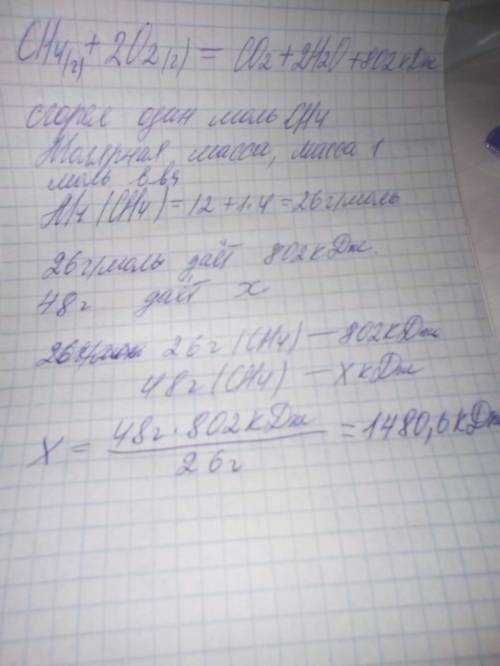 CH4(г) + 2O2(г) = CO2 + 2H2O + 802кДж
сгорел один моль CH4
Молярная масса, масса 1
моль в-ва
Mч (CH4) = 12 + 1·4 = 26г/моль
26г/моль даёт 802кДж.
48г даёт x
26г (CH4) — 802кДж
48г (CH4) — xкДж
X = 48г · 802кДж / 26г = 1480,6кДж